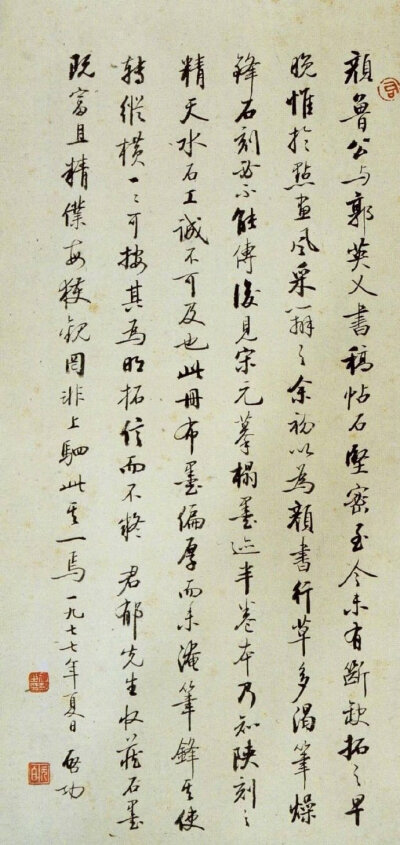 顔魯公与郭英乂書稿帖石堅密至今未有斷缺拓之早
晚惟於點畫風采辨之余初以爲顔書行草多渴筆燥
鋒石刻必不能傳後見宋元摹榻墨迹半卷本乃知陝刻之
精天水石工誠不可及也此冊布墨偏厚而未淹筆鋒其使
轉縱橫一一可按其爲明拓信而不疑 君郁先生收藏石墨
既富且精僕每獲觀罔非上駟此其一焉一九七七年夏日 啓功